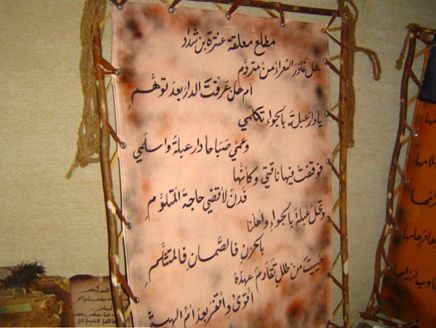 مطلع معلقة عنترة بن شداد
هل غادر الشعراء من متردم
أم هل عرفت الدار بعد توهم
يا دار عبلة بالجواء تكلمي
وعمي صباحاً دار عبلة واسلمي
فوقفت فيها ناقتي وكأنها
فدن لأقضي حاجة المتلوم
وتحل عبلة بالجواء وأهلنا
بالحزن فالصمان فالمتثلم
حييت من طلل تقادم عهده
أقوى وأقفر بعد أم الهيثم